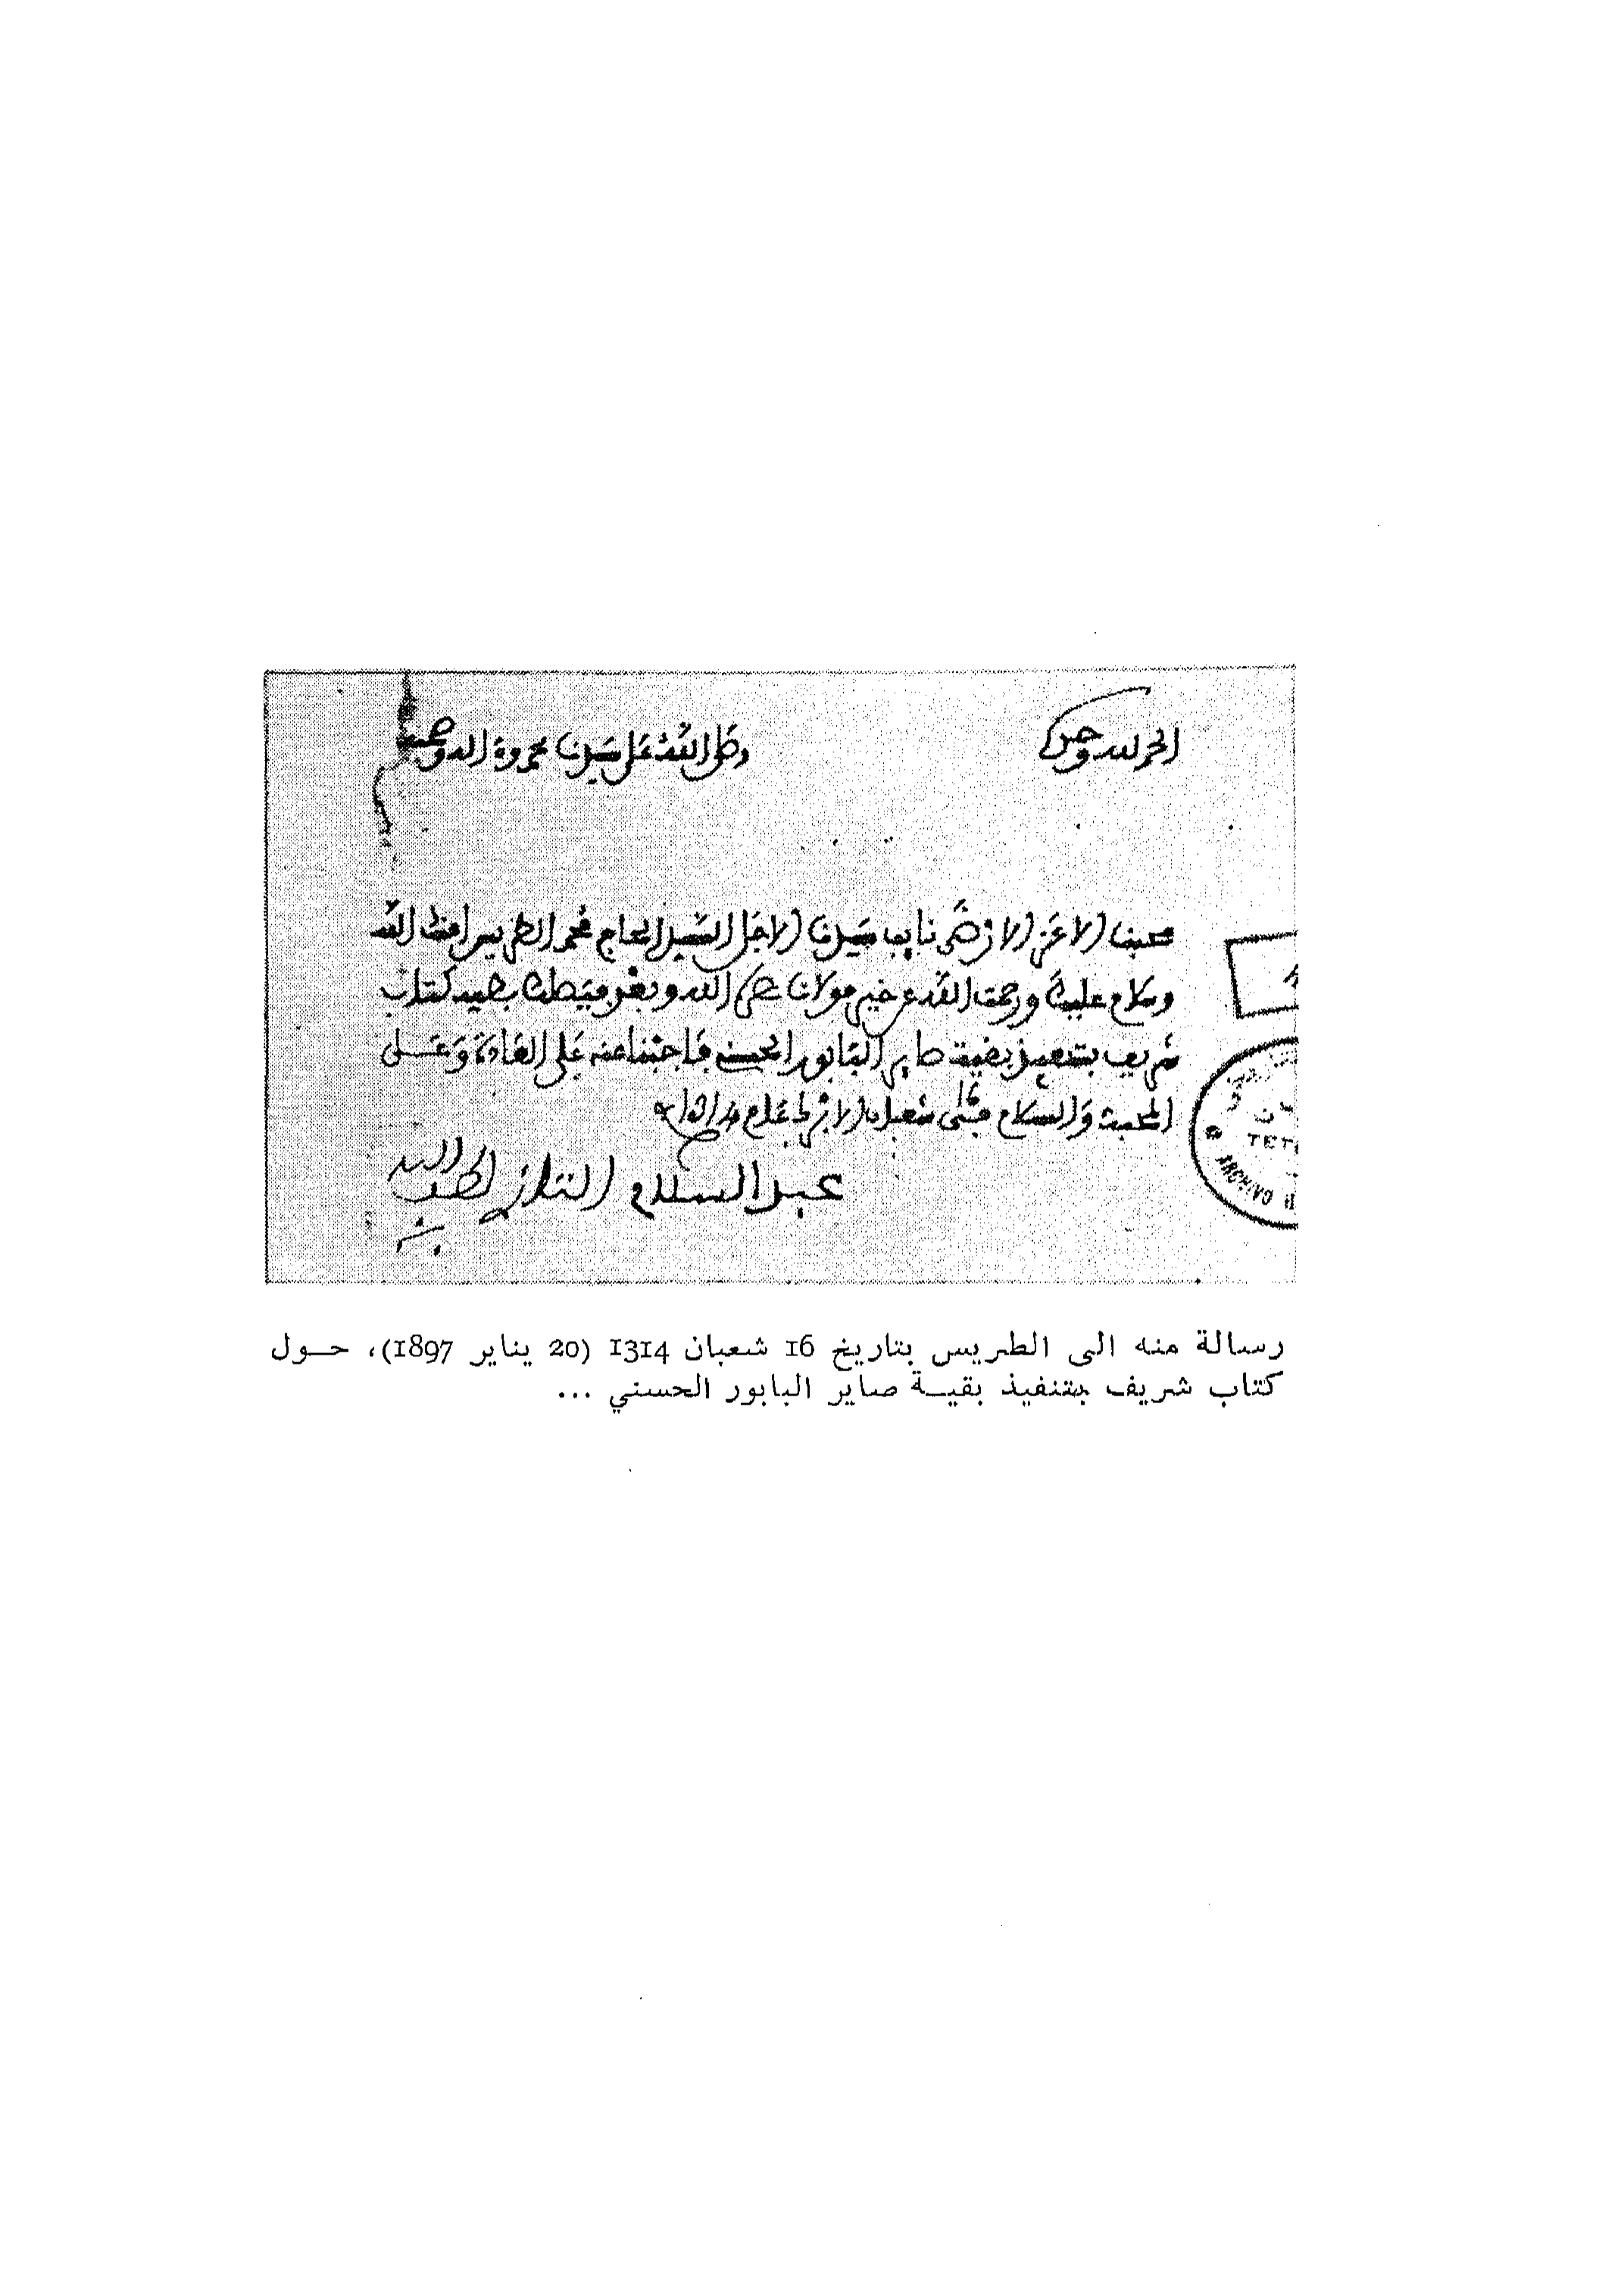 الحمد لله وحده
وصلى الله على سيدنا محمد وءاله وصحبه
محبنا الاعز الارضى نايب سيدنا الاجل السيد الحاج محمد الطريس امنك الله
وسلام عليك ورحمت الله عن خير مولانا نصره الله وبعد فيصلك طيه كتاب
شريف بتنفيذ بقية صاير البابور الحسني فاجتماعنه على العادة وعلى
المحبة والسلام في شعبان الابرك عام
عبد السلام التازي لطف الله
به
TET
رسالة منه الى الطريس بتاريخ 16 شعبان 1314 (20 يناير 1897)، حول
كتاب شريف بتنفيذ بقية صاير البابور الحسني ...